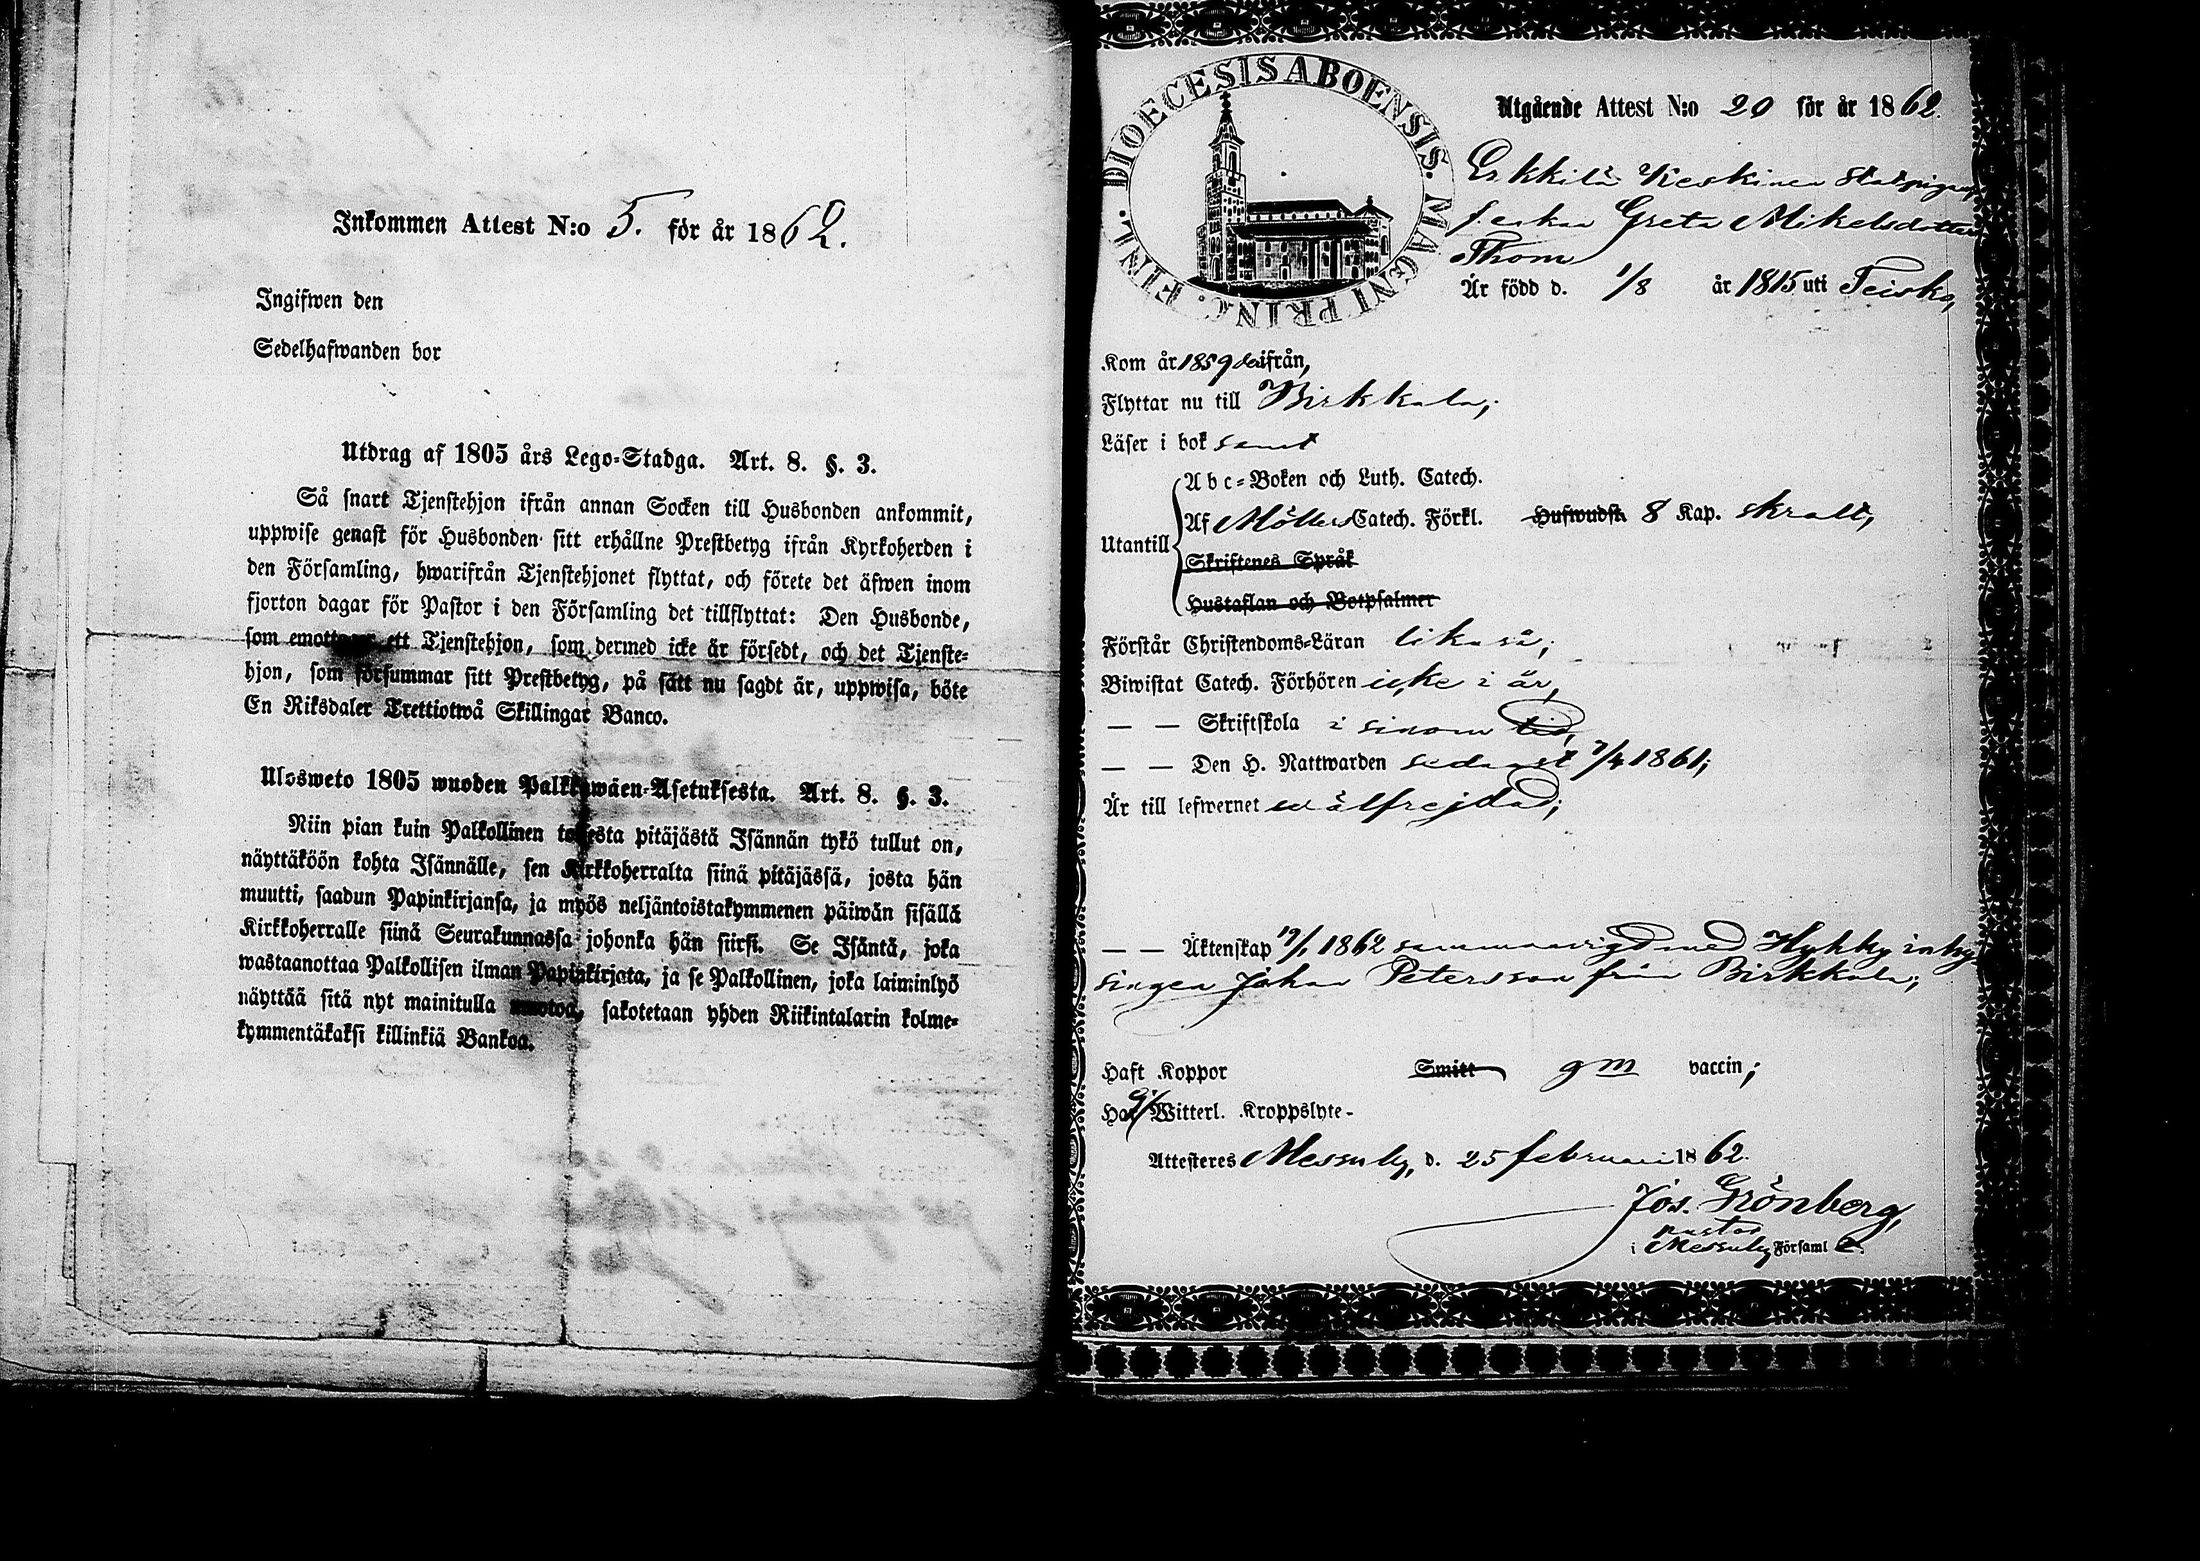 Inkommen Attest N:o 5. för år 1862.
Ingifwen den
Sedelhafwanden bor
Utdrag af 1805 års Lego-Stadga. Art. 8. §. 3.
Så snart Tjenstehjon ifrån annan Socken till Husbonden ankommit,
uppwise genast för Husbonden sitt erhållne Prestbetyg ifrån Kyrkoherden i
den Församling, hwarifrån Tjenstehjonet flyttat, och förete det äfwen inom
fjorton dagar för Pastor i den Församling det tillflyttat: Den Husbonde,
som emottager ett Tjenstehjon, som dermed icke är försedt, och det Tjenste-
hjon, som försummar sitt Prestbetyg, på sätt nu sagdt är, uppwisa, böte
En Riksdaler Trettiotwå Skillingar Banco.
Ulosweto 1805 wuoden Palkkawäen-Asetuksesta. Art. 8. §. 3.
Niin pian kuin Palkollinen toisesta pitäjästä Isännän tykö tullut on,
näyttäköön kohta Isännälle, sen Kirkkoherralta siinä pitäjässä, josta hän
muutti, saadun Papinkirjansa, ja myös neljäntoistakymmenen päiwän sisällä
Kirkkoherralle siinä Seurakunnassa johonka hän siirsi. Se Isäntä, joka
wastaanottaa Palkollisen ilman Papinkirjata, ja se Palkollinen, joka laiminlyö
näyttää sitä nyt mainitulla muotoa, sakotetaan yhden Riikintalarin kolme-
kymmentäkaksi killinkiä Bankoa.
DIOECESIS ABOENSIS. MAGNI PRINC. FINL.
Utgående Attest N:o 20 för år 1862.
Erkkilä Keskinen
Greta Mikelsdotter
Thom
Är född d. 1/8 år 1815 uti Teisko,
Kom år 1859 derifrån,
Flyttar nu till Birkkala;
Läser i bok samt
Utantill
Abc-Boken och Luth. Catech.
Af Möllers Catech. Förkl. Hufwudst. 8 Kap. skralt;
Skriftenes Språk
Hustaflan och Botpsalmer
Förstår Christendoms-Läran likaså;
Biwistat Catech. Förhören icke i år,
— — Skriftskola i sinom tid,
— — Den H. Nattwarden sednast 7/4 1861;
Är till lefwernet wälfrejdad;
— — Äktenskap 19/1 1862 sammanvigd med Hykky inhy-
singen Johan Petersson från Birkkala;
Haft Koppor Smitt gm vaccin;
Har ej Witterl. Kroppslyte-
Attesteres Messuby, d. 25 februari 1862.
Jos. Grönberg,
pastor
i Messuby Församl